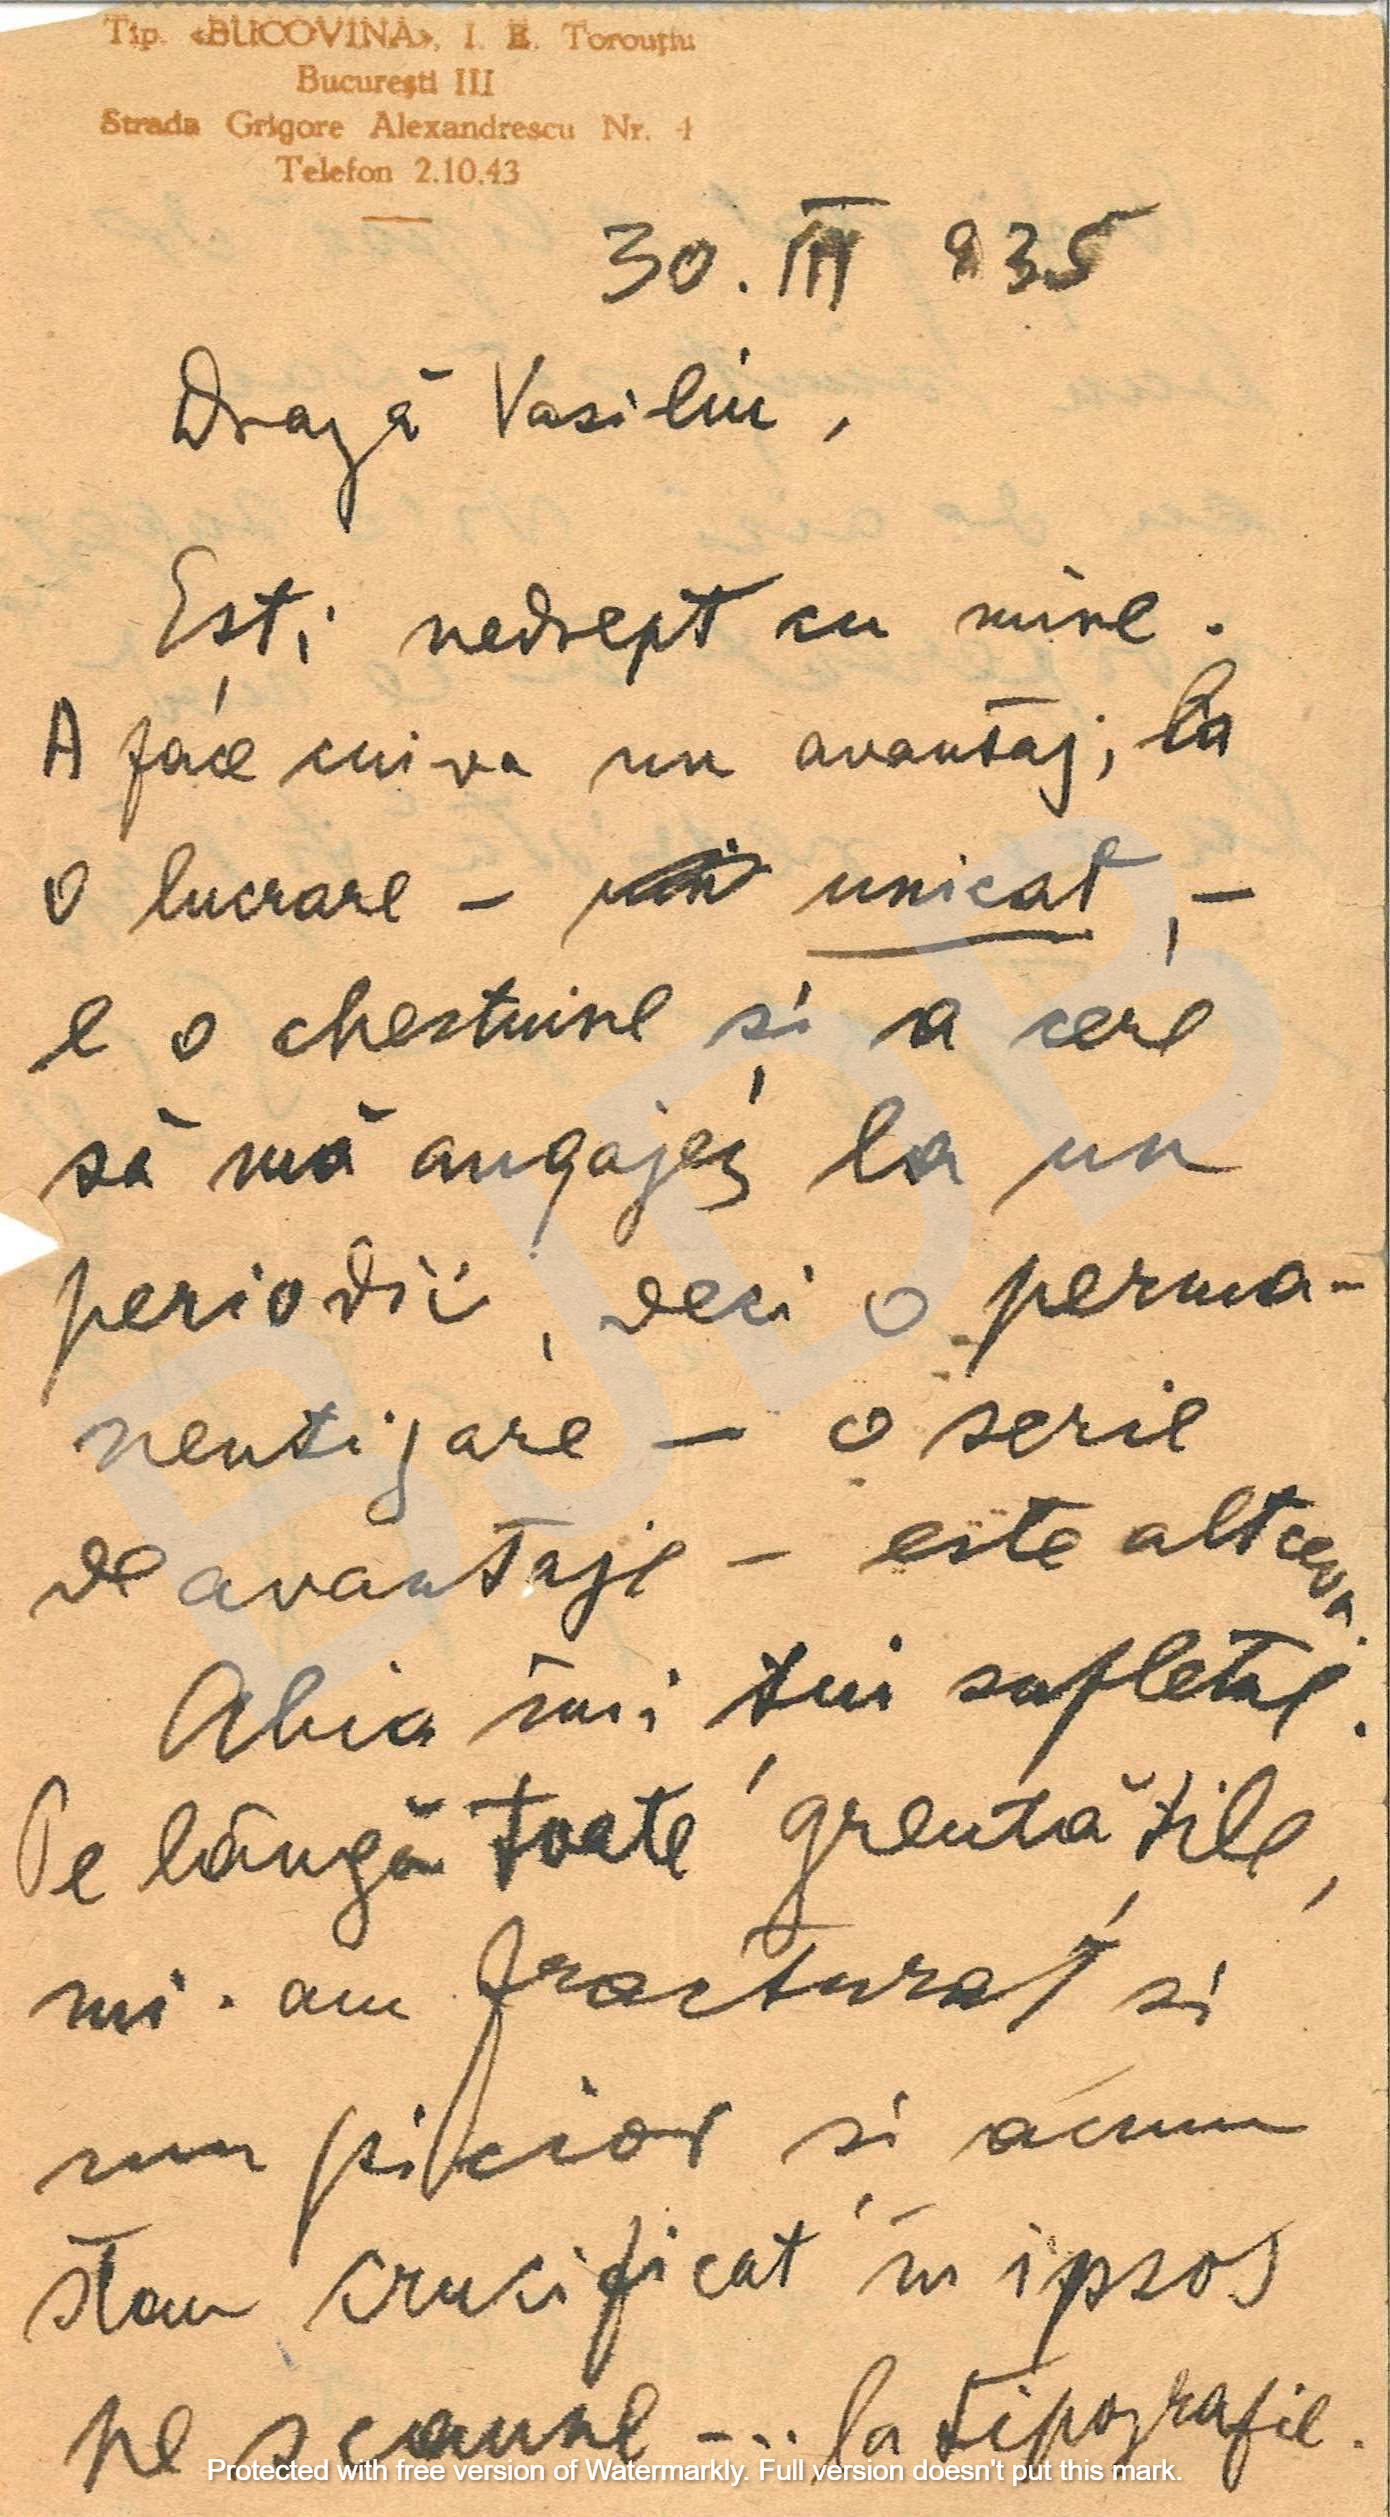 Tip. «BUCOVINA», I. E. Torouțiu
București III
Strada Grigore Alexandrescu Nr. 4
Telefon 2.10.43
30. III 935
Dragă Vasiliu,
Ești nedrept cu mine.
A face cuiva un avantaj, la
o lucrare – unicat, –
e o chestiune și a cere
să mă angajez la un
periodic, deci o perma-
nentizare – o serie
de avantaje – este altceva.
Abia îmi țiu sufletul.
Pe lângă toate greutățile,
mi-am fracturat si
un picior și acum
stau crucificat în ipsos
pe scaune --.. la tipografie.
BJDB
Protected with free version of Watermarkly. Full version doesn't put this mark.